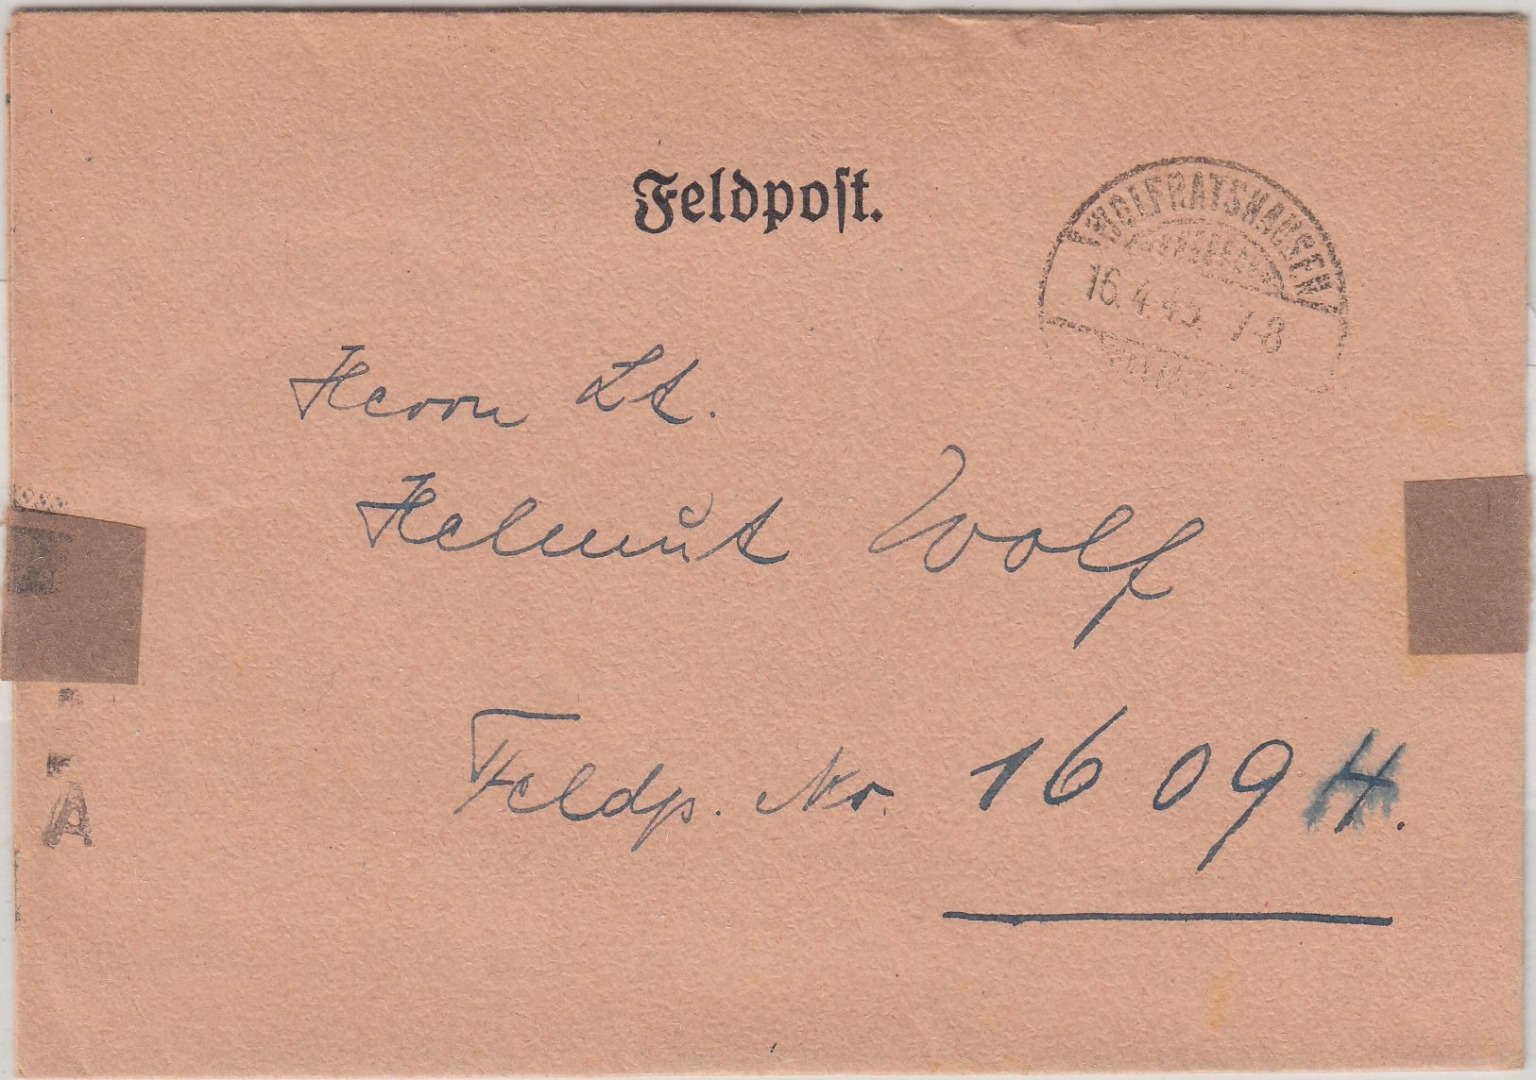 Feldpost.
WOLFRATSHAUSEN
16.4.45. 7-8
Herrn Lt.
Helmut Wolf
Feldp. Nr. 16 094.
A